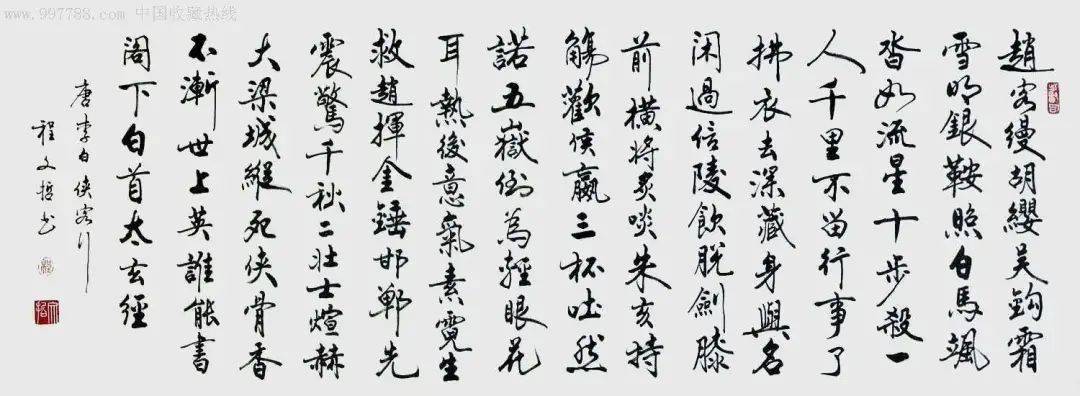 www.997788.com 中国收藏热线
趙客縵胡纓吳鈎霜
雪明銀鞍照白馬颯
沓如流星十步殺一
人千里不留行事了
拂衣去深藏身與名
閑過信陵飲脫劍膝
前橫將炙啖朱亥持
觴勸侯嬴三杯吐然
諾五嶽倒為輕眼花
耳熱後意氣素霓生
救趙揮金錘邯鄲先
震驚千秋二壯士煊赫
大梁城縱死俠骨香
不漸世上英誰能書
閣下白首太玄經
唐李白俠客行
程文哲書